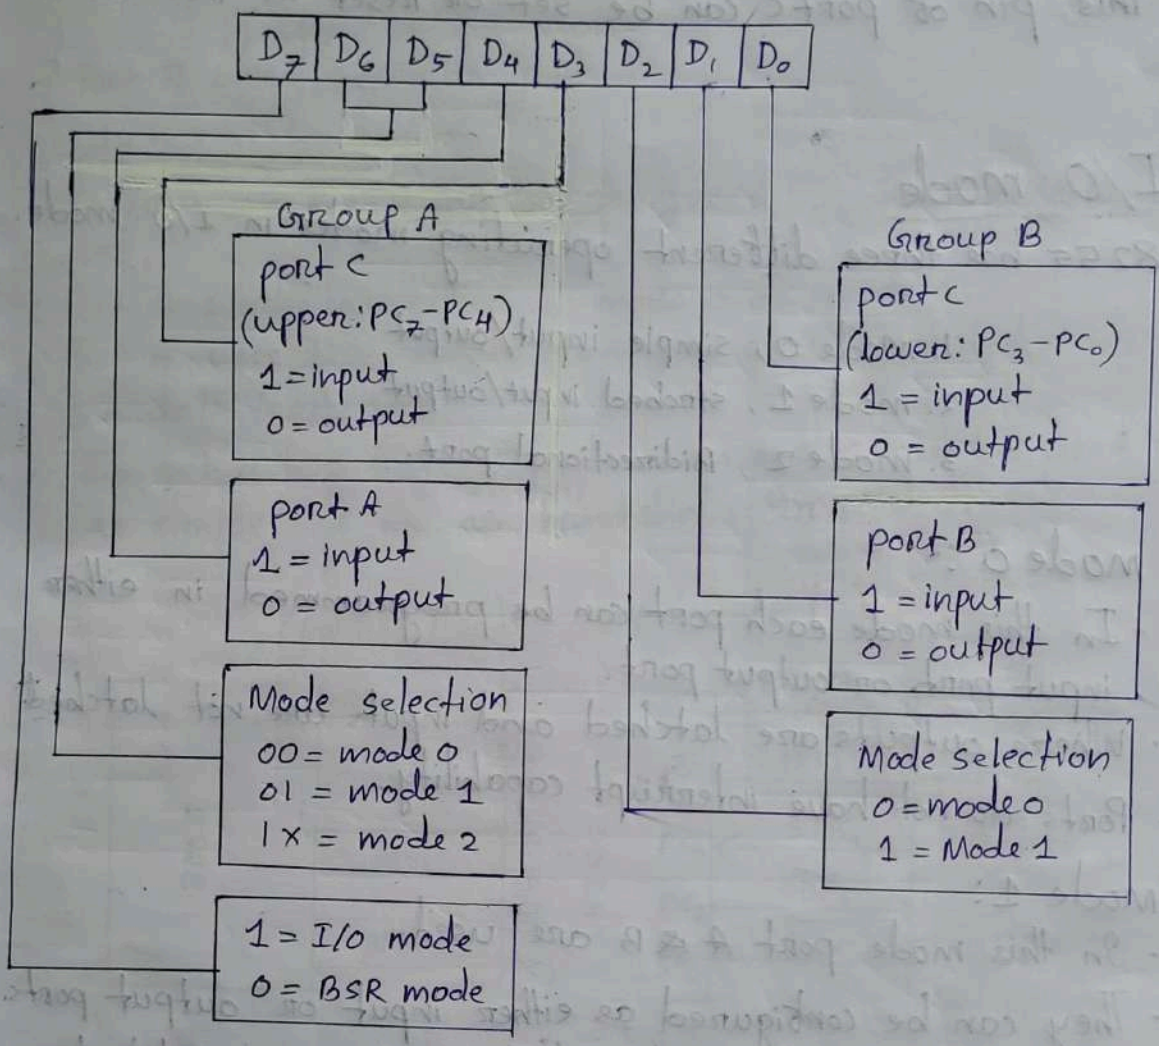 D7 D6 D5 D4 D3 D2 D1 D0
Group A
port C
(upper: PC7-PC4)
1 = input
0 = output
port A
1 = input
0 = output
Mode selection
00 = mode 0
01 = mode 1
1x = mode 2
1 = I/O mode
0 = BSR mode
Group B
port C
(lower: PC3-PC0)
1 = input
0 = output
port B
1 = input
0 = output
Mode selection
0 = mode 0
1 = Mode 1